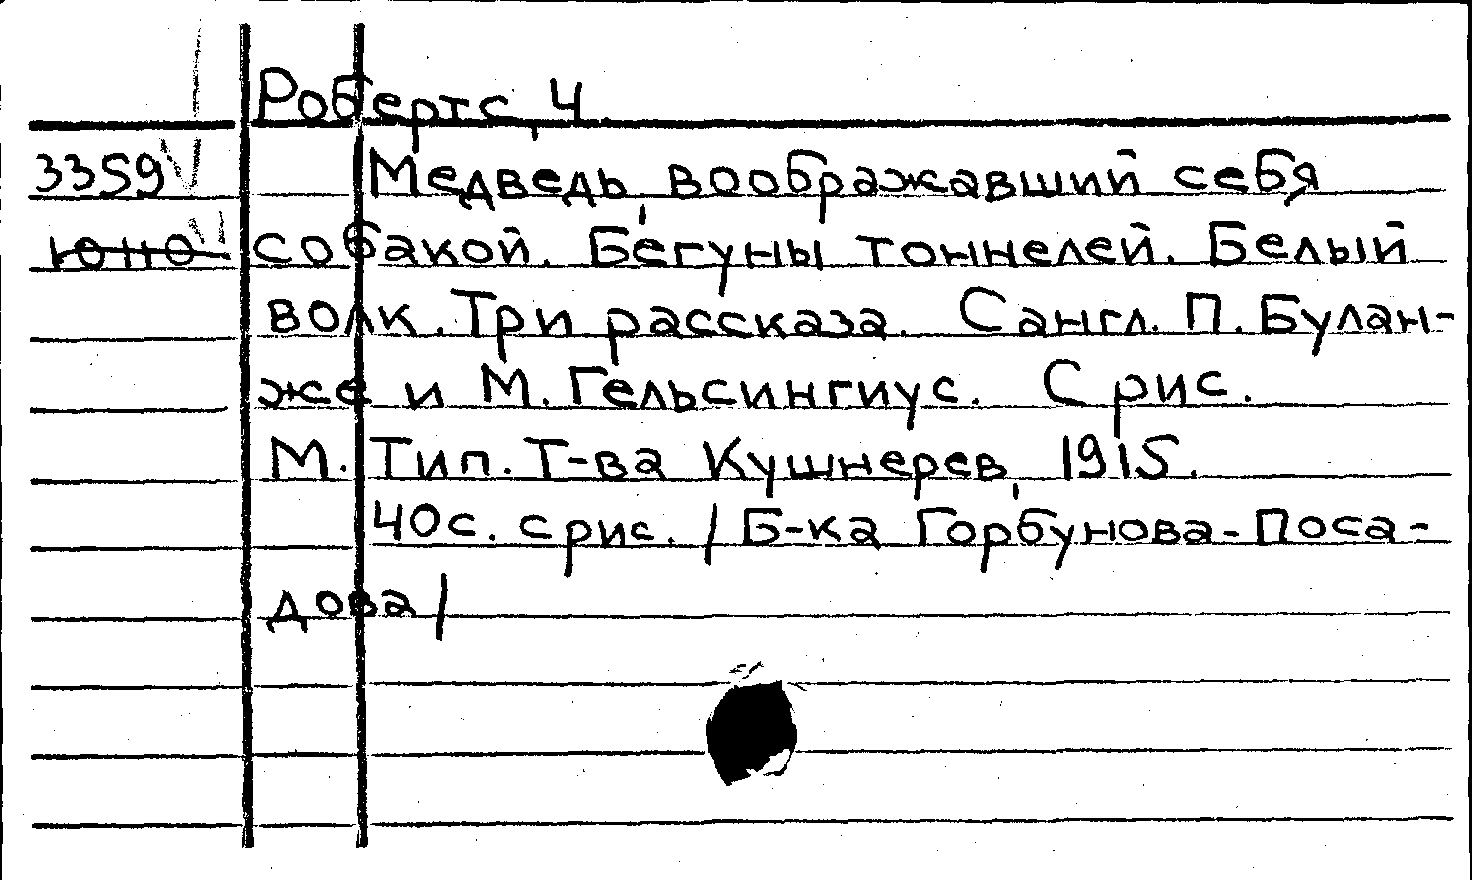 Робертс, Ч.
3359 Медведь, воображавший себя
10110 собакой. Бегуны тоннелей. Белый
волк. Три рассказа. С англ. П. Булан-
же и М. Гельсингиус. С рис.
М. Тип. Т-ва Кушнерев, 1915.
40с. с рис. / Б-ка Горбунова-Поса-
дова/